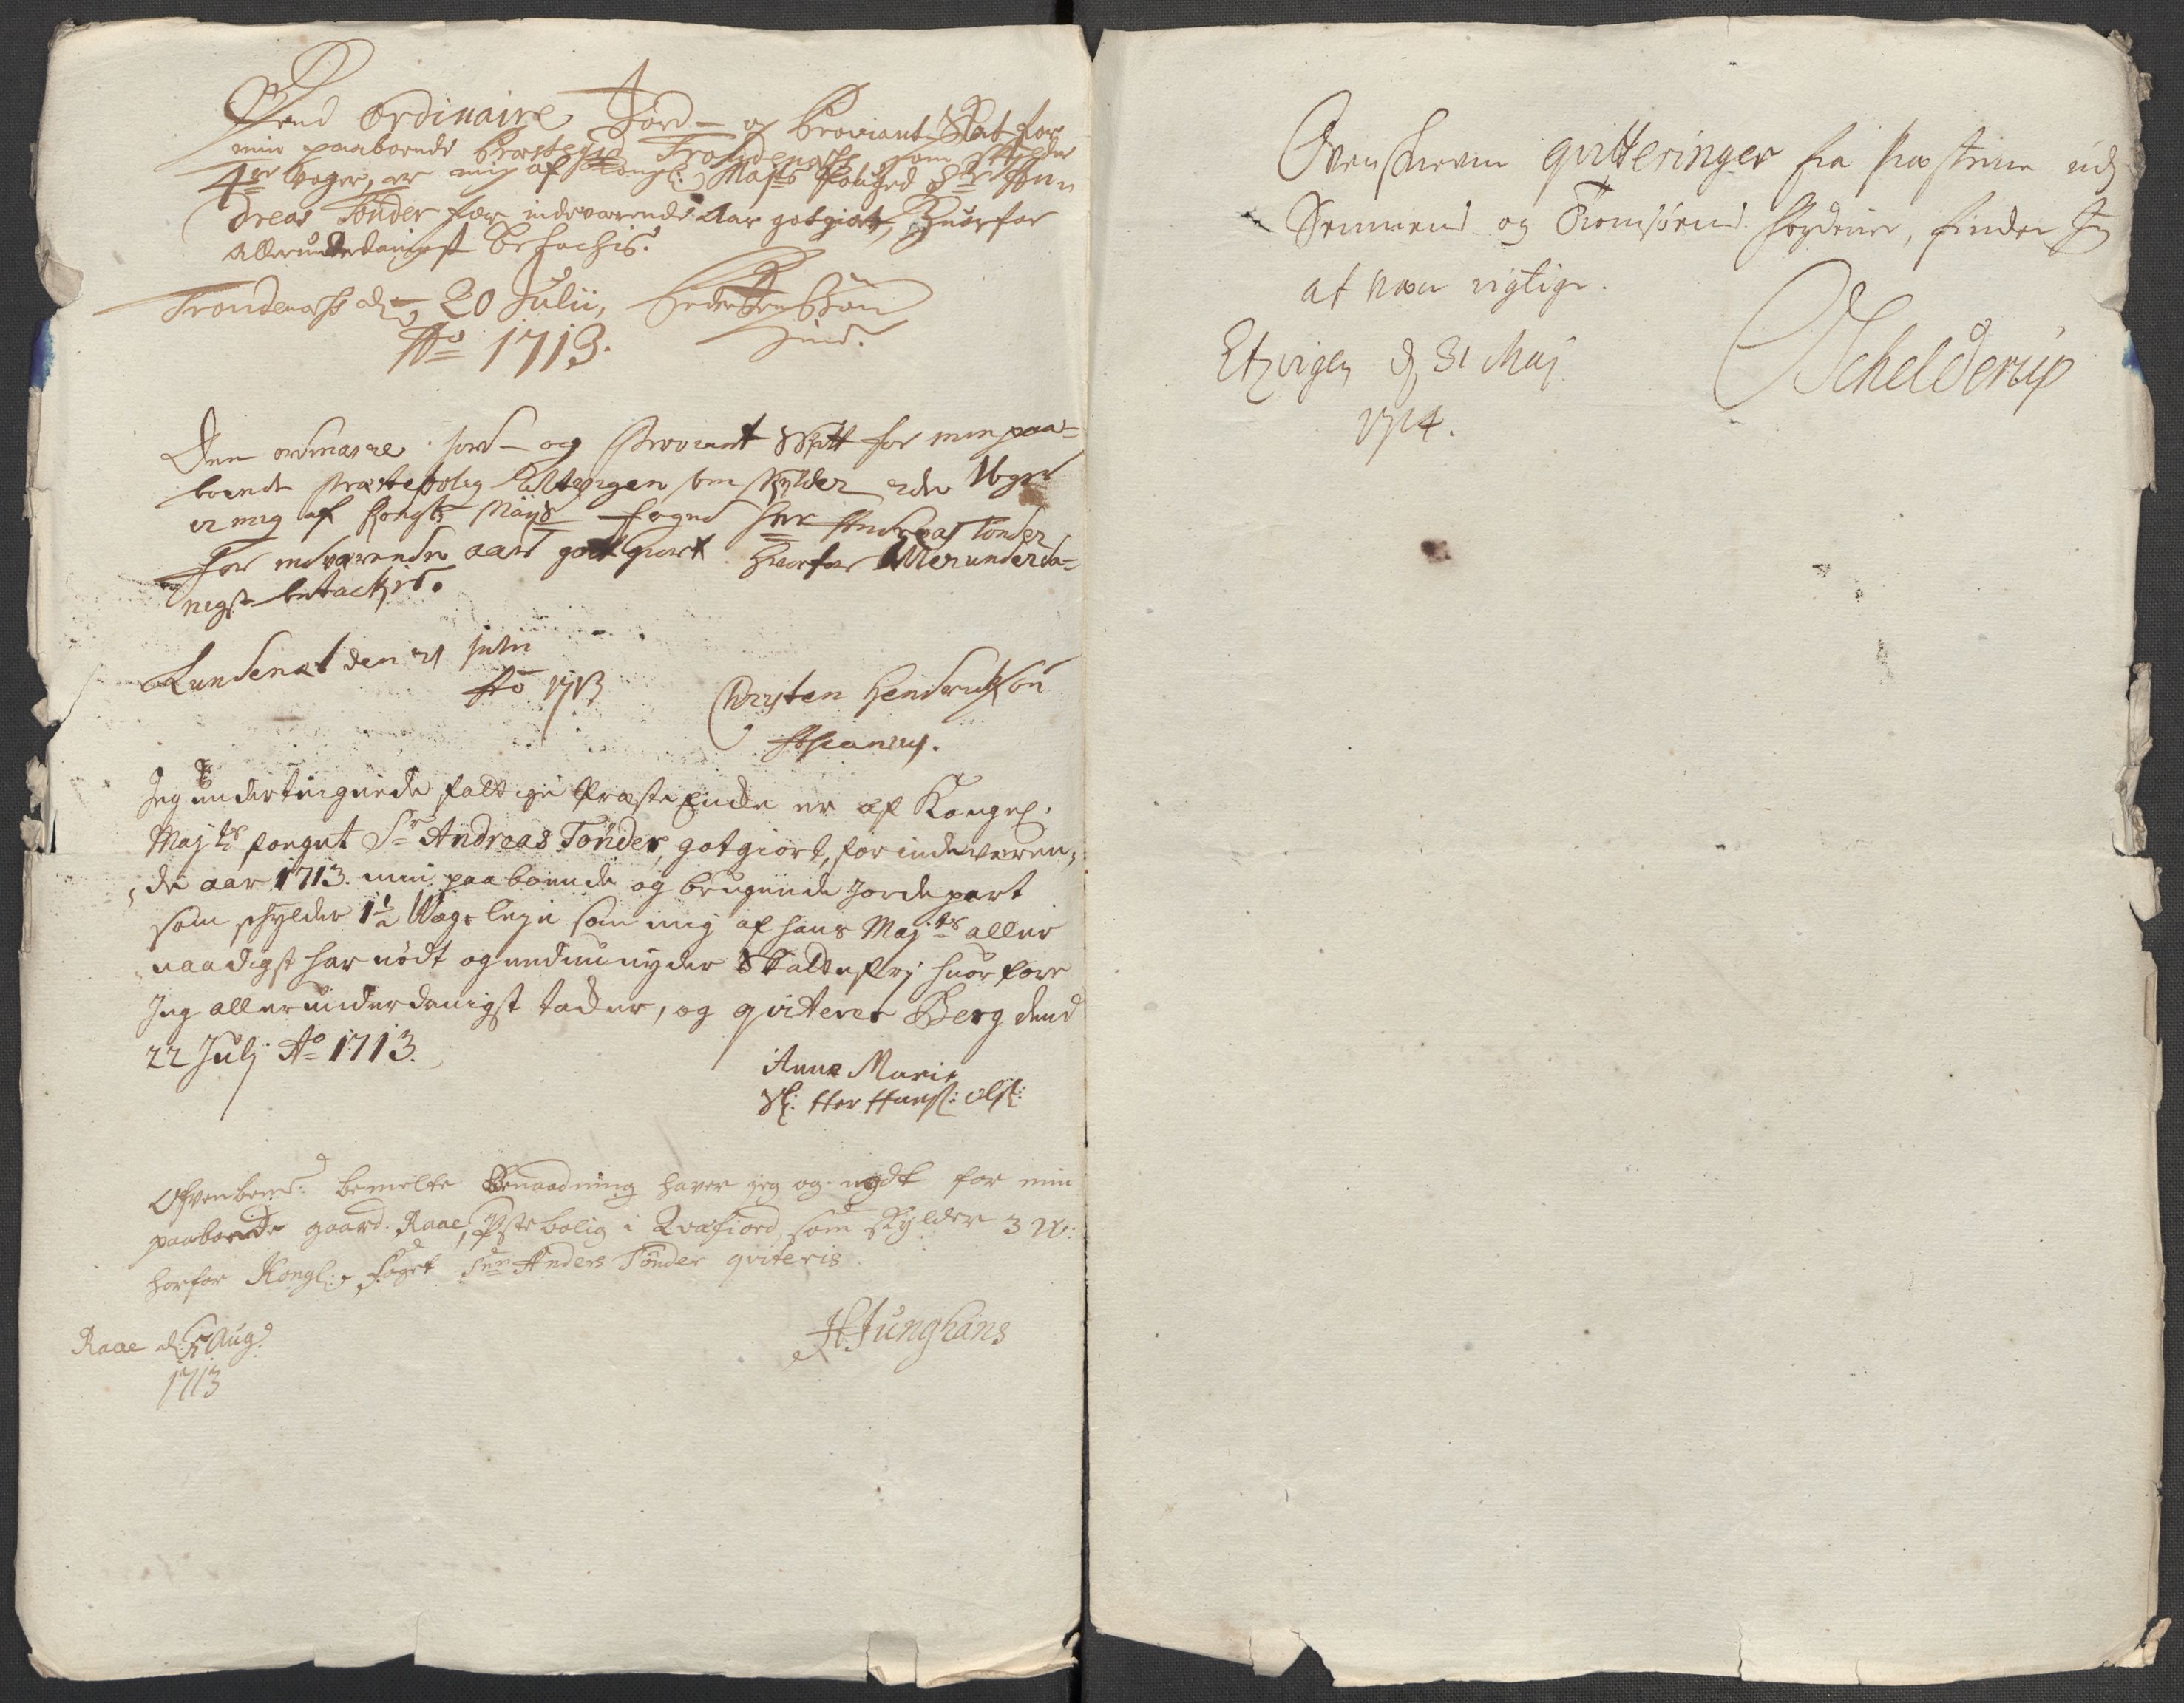 Dend Ordinaire Jord- og Proviant Skat for
min paaboende Præstegield Trondenæss som skylder
4re Voger, er mig af Kongl: Majts Fouged Sr An-
dreas Tønder for indeværende Aar gotgiort, Huorfor
allerunderdanigst betachis.
Trondenæss d. 20 Julii,
Ao 1713.
Den ordinaire jord- og Proviant Skatt for min paa-
boende Præstebolig som skylder Voger
er mig af Kongl Mayts foged Sr Andreas Tønder
for indværende aar gotgiort Hvorfor Allerunderda-
nigst betackis.
Sandenæs den 21 julii
Ao 1713
Christen Hendrichsøn
Jeg undertegnede fattige Præste Encke er af Kongel.
Majts fougut Sr Andreas Tønder, gotgiort, for indeværen-
de aar 1713. min paaboende og brugende Jordepart
som schylder 1½ Wogs leje som mig af hans Majts aller
naadigst har nødt og endnu nyder Skattefrj huorfore
Jeg allerunderdanigst tacker, og qviterer Berg dend
22 Julj Ao 1713.
Anne Marie
Sl: Her Hans:
Ofvenbemt: bemelte Benaadning haver jeg og nydt for min
paaboende gaard Raae, Pstebolig i Qvæfiord, som skylder 3 W:
horfor Kongl: Foget Sr Anders Tønder qviteris.
HJunghans
Raae d: 5 Aug:
1713
Ovenschrevne qvitteringer fra Præsterne udj
Senniens og Tromsøens fogderier, finder Jeg
at være rigtige.
d 31 Maj
1714.
Schelderup